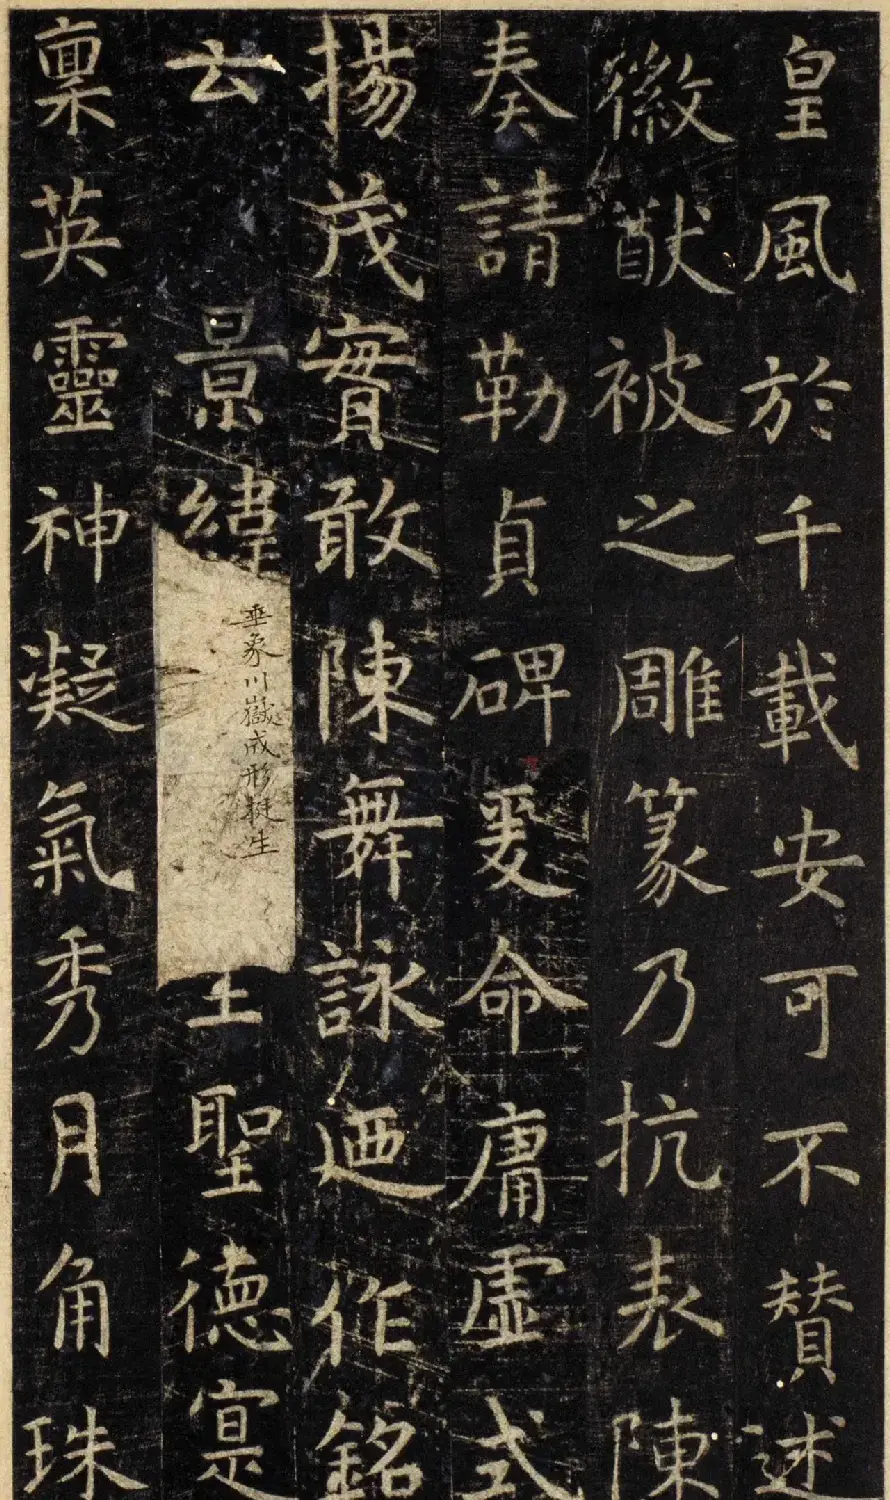 皇風於千載安可不贊述
徽猷被之雕篆乃抗表陳
奏請勒貞碑爰命庸虛式
揚茂實敢陳舞詠迺作銘
云景緯
垂象川嶽成形挺生
王聖德寔
稟英靈神凝氣秀月角珠